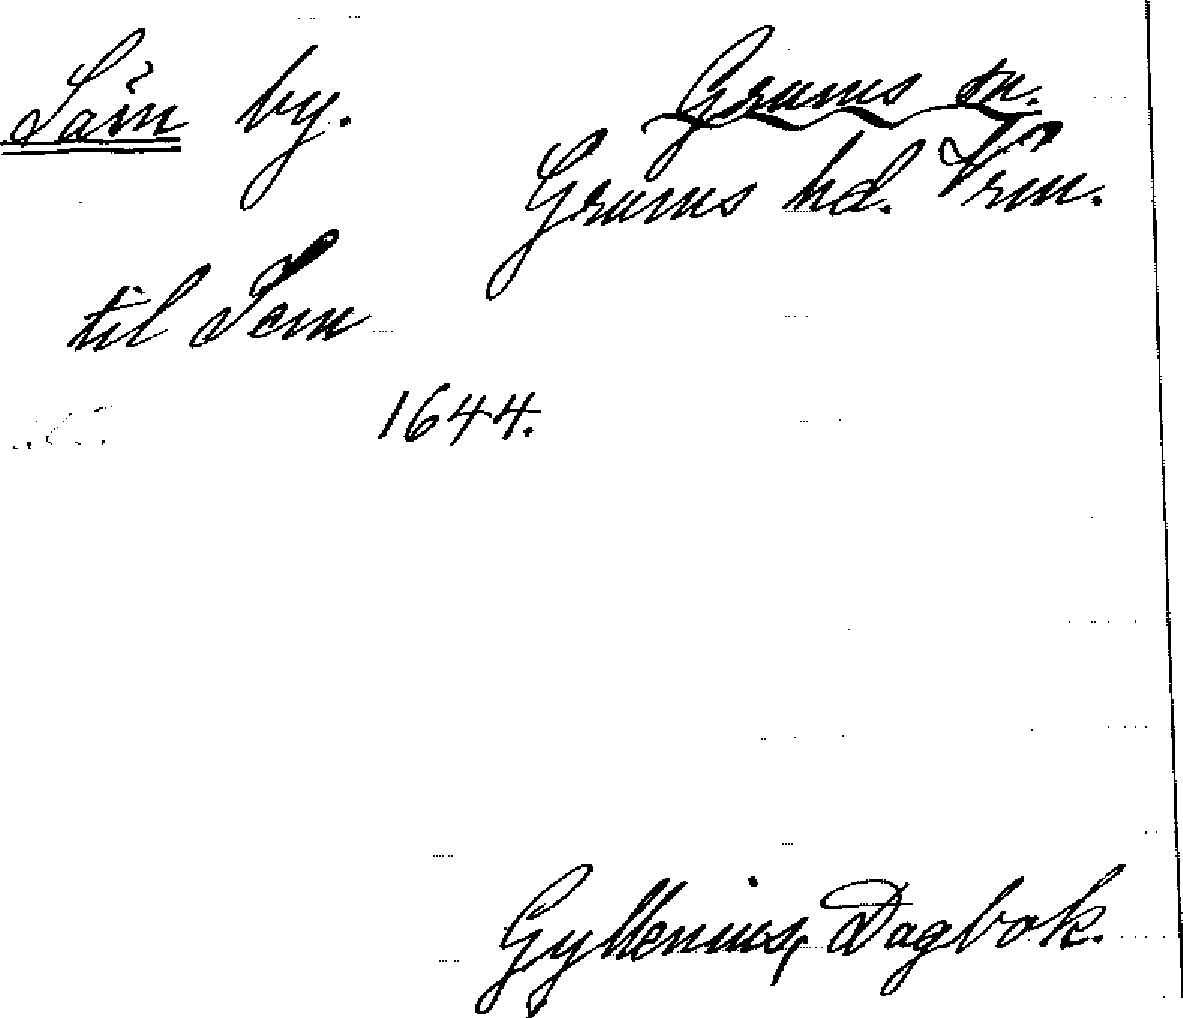 Säm by. Grums sn.
Grums hd. Vrm.
til Sem
1644.
Gyllenius, Dagbok.